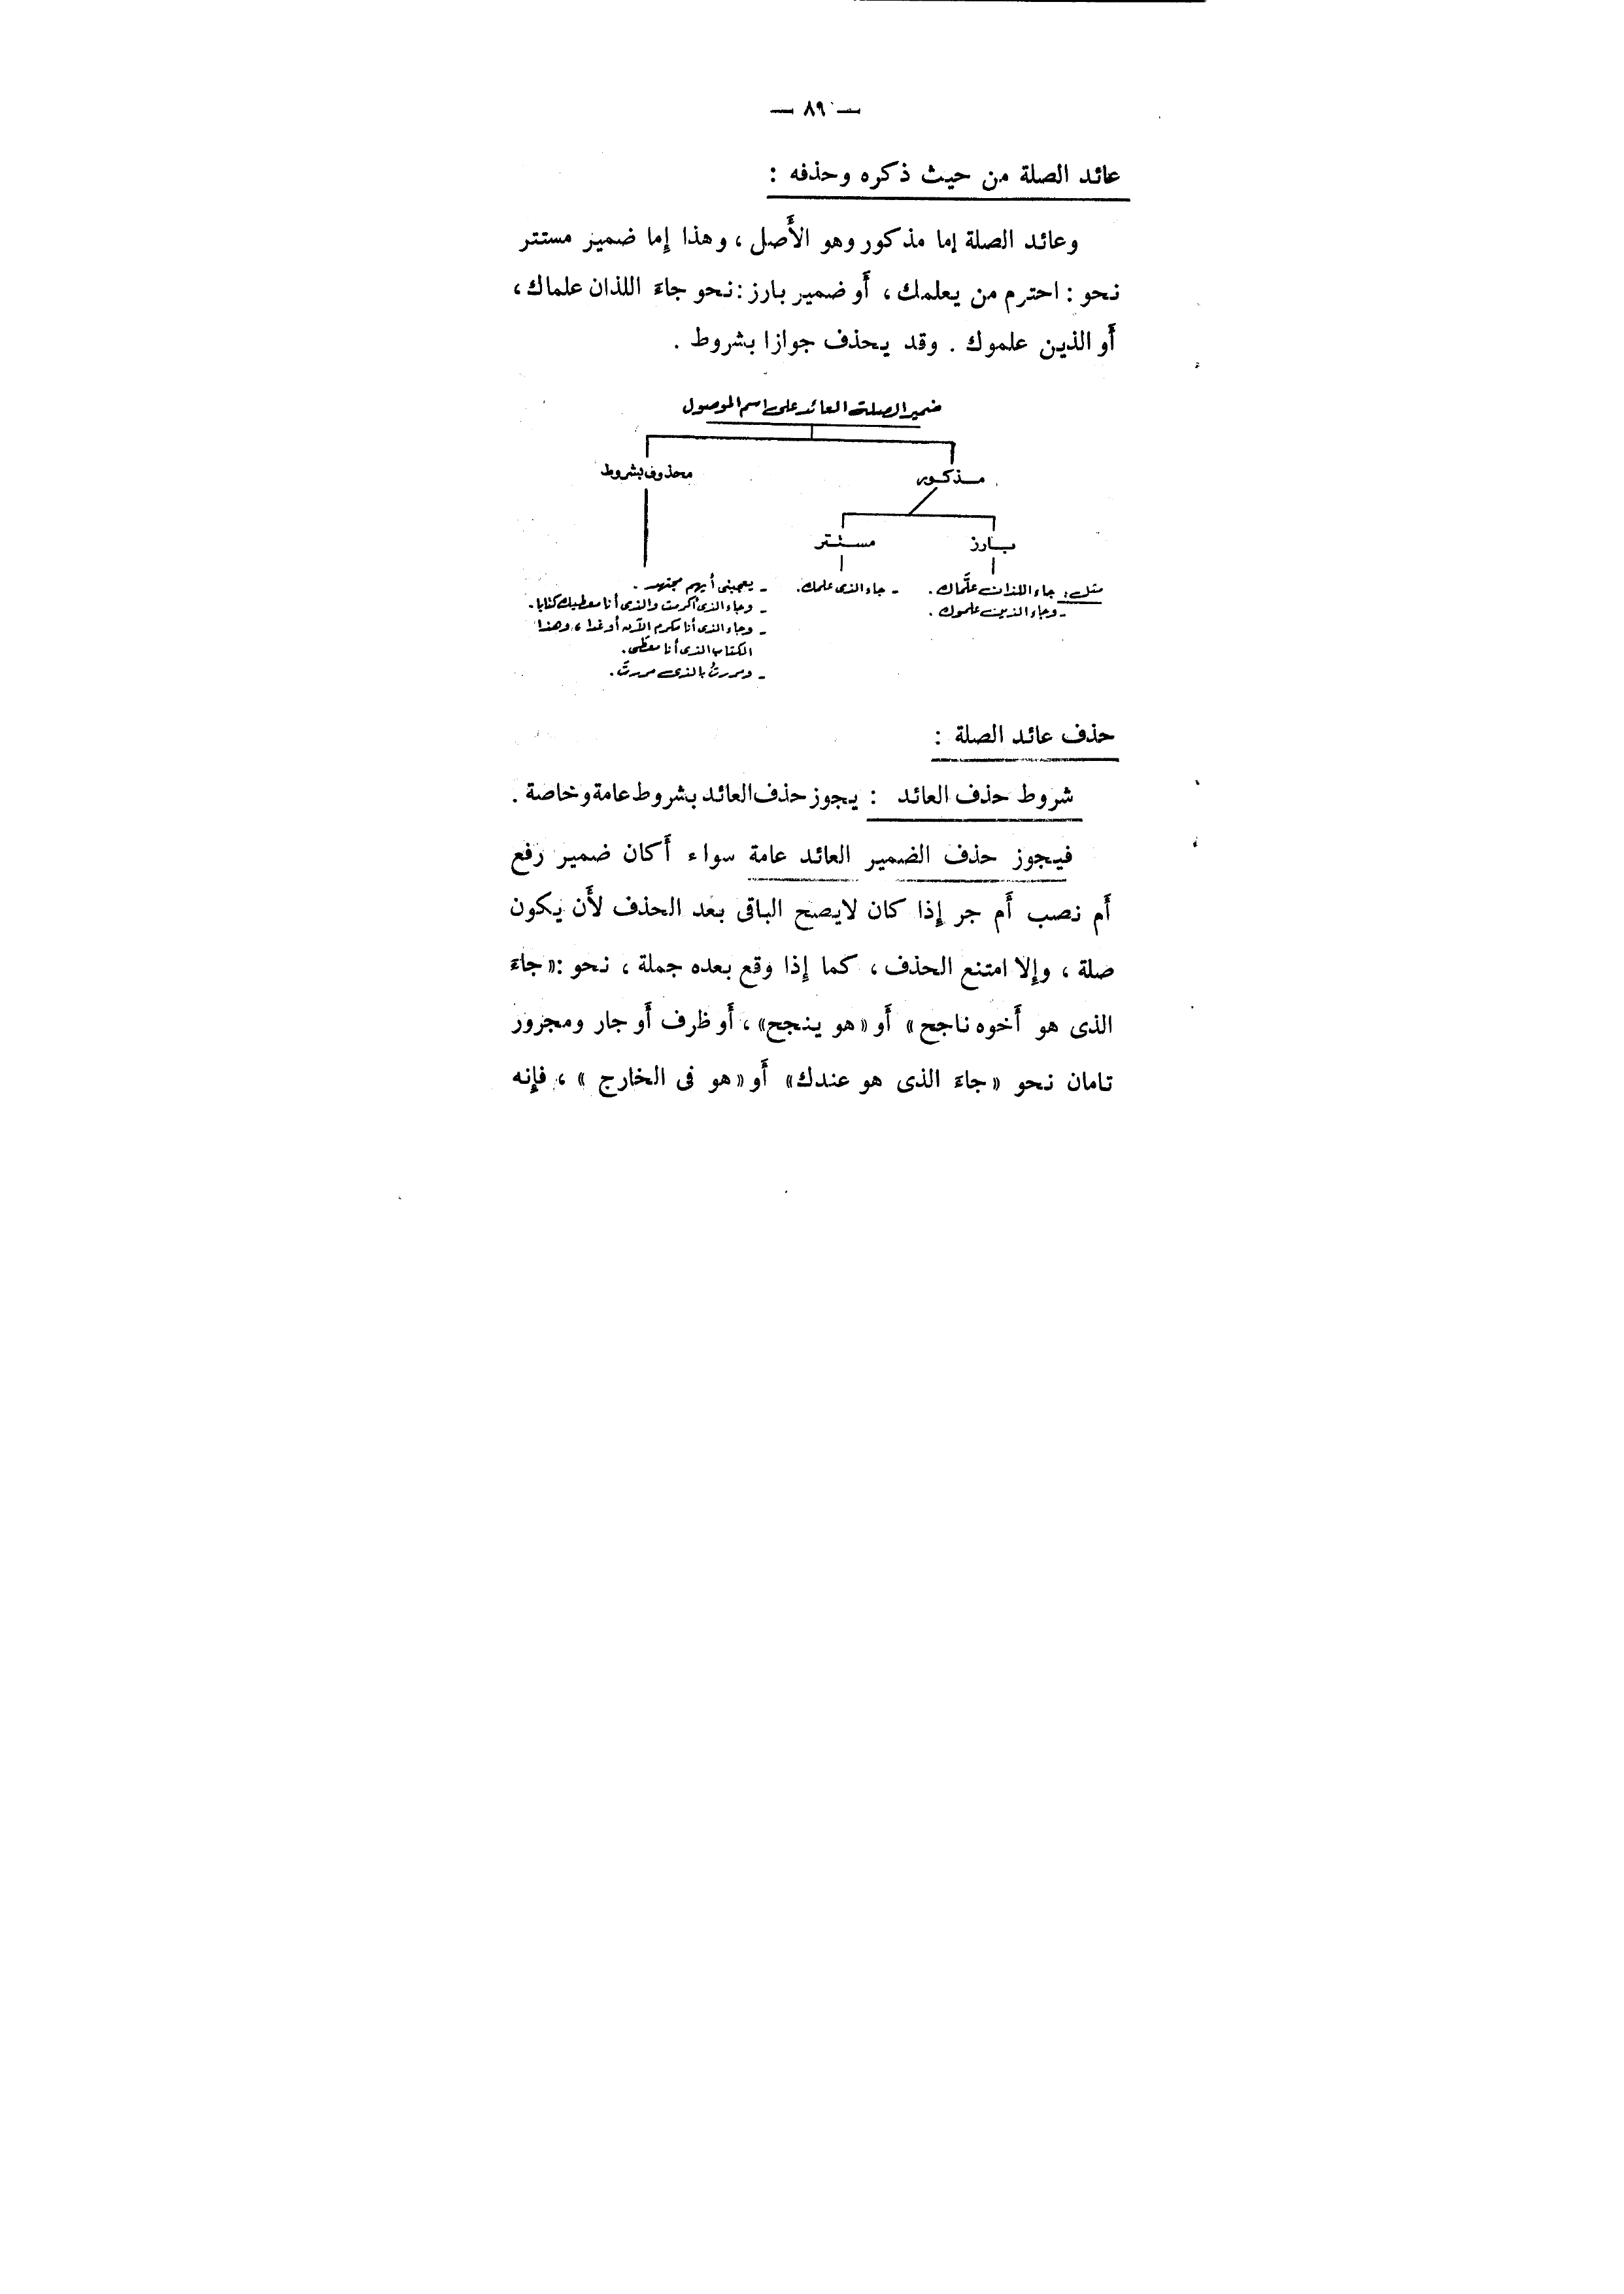 — ٨٩ —
عائد الصلة من حيث ذكره وحذفه :
وعائد الصلة إما مذكور وهو الأَصل ، وهذا إِما ضمير مستتر
نحو : احترم من يعلمك ، أَو ضمير بارز : نحو جاءَ اللذان علماك ،
أَو الذين علموك . وقد يحذف جوازا بشروط .
ضمير الصلة العائد على اسم الموصول
مذكور
محذوف بشروط
بارز
مستتر
مثل : جاء اللذان علَّماك .
- وجاء الذين علموك .
- جاء الذى علمك .
- يعجبنى أيهم مجتهد .
- وجاء الذى أكرمت والذى أنا معطيك كتابا .
- وجاء الذى أنا مكرم الآن أو غدا ، وهذا
الكتاب الذى أنا معطى .
- ومررتُ بالذى مررتَ .
حذف عائد الصلة :
شروط حذف العائد : يجوز حذف العائد بشروط عامة وخاصة .
فيجوز حذف الضمير العائد عامة سواء أَكان ضمير رفع
أَم نصب أَم جر إِذا كان لايصح الباقى بعد الحذف لأَن يكون
صلة ، وإِلا امتنع الحذف ، كما إِذا وقع بعده جملة ، نحو : « جاءَ
الذى هو أَخوه ناجح » أَو « هو ينجح » ، أَو ظرف أَو جار ومجرور
تامان نحو « جاءَ الذى هو عندك » أَو « هو فى الخارج » ، فإِنه